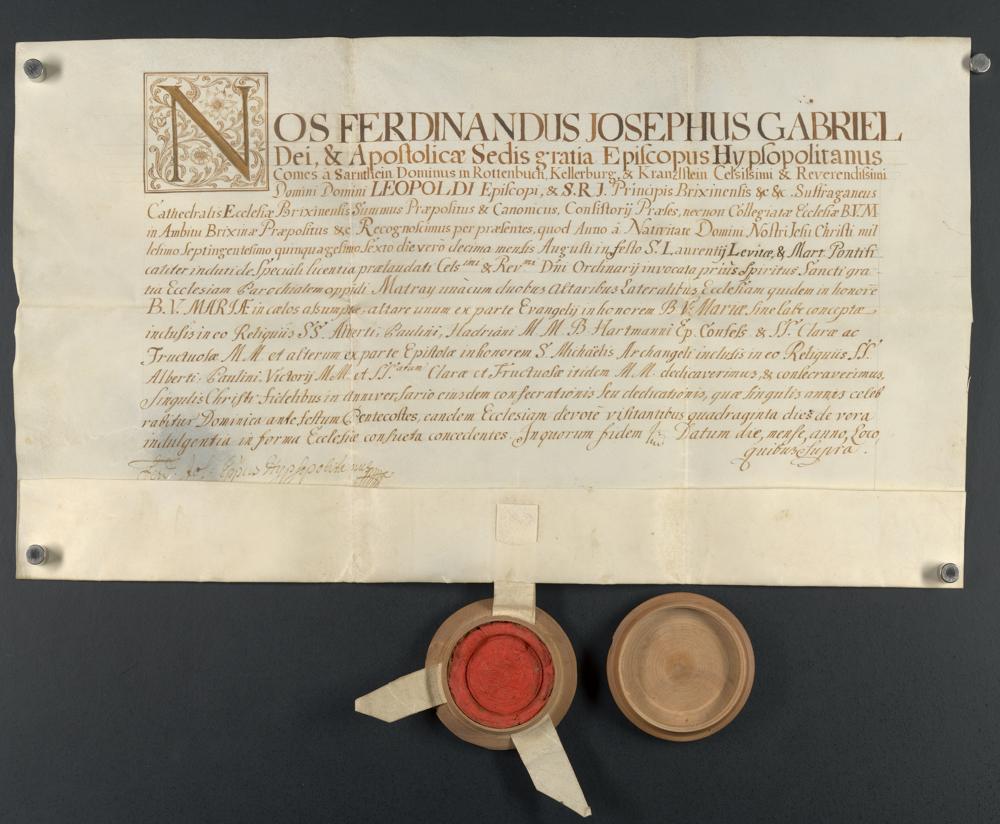 NOS FERDINANDUS JOSEPHUS GABRIEL
Dei, & Apostolicæ Sedis gratia Episcopus Hypsopolitanus
Comes à Sarnthein Dominus in Rottenbuch, Kellerburg, & Kranzlstein Celsissimi & Reverendissimi
Domini Domini LEOPOLDI Episcopi, & S. R. I. Principis Brixinensis &c &c. Suffraganeus
Cathedralis Ecclesiæ Brixinensis Summus Præpositus & Canonicus, Consistorij Præses, necnon Collegiatæ Ecclesiæ B.V.M
in Ambitu Brixinæ Præpositus &c Recognoscimus per præsentes, quod Anno à Nativitate Domini Nostri Jesu Christi mil
lesimo Septingentesimo quinquagesimo Sexto die verò decima mensis Augusti in festo S. Laurentij Levitæ, & Mart. Pontifi
caliter induti de Speciali licentia prælaudati Cels.mi & Rev.mi Dñi Ordinarij invocata priùs Spiritus Sancti gra
tia Ecclesiam Parochialem oppidi Matray unàcum duobus Altaribus Lateralibus, Ecclesiam quidem in honorē
B. V. MARIÆ in cælos assumptæ, altare unum ex parte Evangelij in honorem B. V. Mariæ, sine labe conceptæ
inclusis in eo Reliquijs SS. Alberti, Paulini, Hadriani M M. B. Hartmanni Ep. Confess & SS. Claræ ac
Fructuosæ M.M. et alterum ex parte Epistolæ in honorem S. Michaëlis Archangeli inclusis in eo Reliquijs SS.
Alberti, Paulini, Victorij M.M. et SS.arum Claræ et Fructuosæ itidem M.M. dedicaverimus, & consecraverimus,
Singulis Christi fidelibus in anniversario eiusdem consecrationis seu dedicationis, quæ singulis annis celeb
rabitur Dominica ante festum Pentecostes, eandem Ecclesiam devotè visitantibus quadraginta dies de vera
indulgentia in forma Ecclesiæ consueta concedentes. In quorum fidem Datum die, mense, anno, Loco,
quibus supra.
Ferd. Jos. Eppus Hypsopolitanus